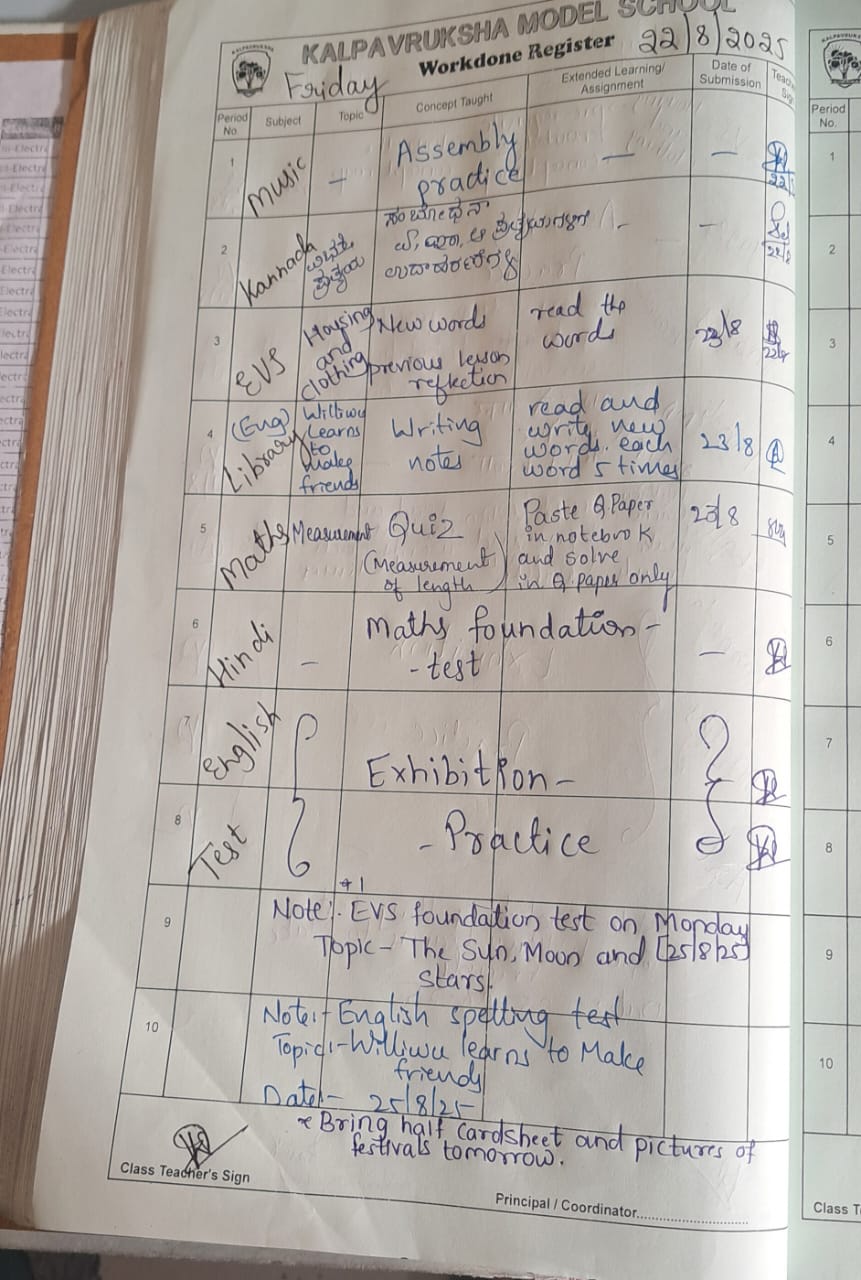 KALPAVRUKSHA MODEL SCHOOL
Workdone Register 22/8/2025
Friday
Period No. Subject Topic Concept Taught Extended Learning/ Assignment Date of Submission
1 Music - Assembly practice - -
22/
2 Kannada ಪ್ರತ್ಯಯ ಸಂಬೋಧನಾ - -
ಉದಾಹರಣೆಗಳು
22/8
3 EVS Housing and clothing New words read the words 23/8
previous lesson reflection
22/8
4 (Eng) Library Williwu learns to make friends Writing notes read and write new words. each word 5 times 23/8
5 Maths Measurement Quiz (Measurement of length) Paste Q.Paper in notebook and solve in Q.paper only 23/8
6 Hindi - Maths foundation - - test -
7 English Exhibition -
8 Test - Practice
9 Note:- EVS foundation test on Monday
Topic - The Sun, Moon and [25/8/25]
Stars.
10 Note:- English spelling test
Topic:- Williwu learns to Make
friends
Date:- 25/8/25
* Bring half Cardsheet and pictures of
festivals tomorrow.
Class Teacher's Sign
Principal / Coordinator
Period No.
1
2
3
4
5
6
7
8
9
10
Class T